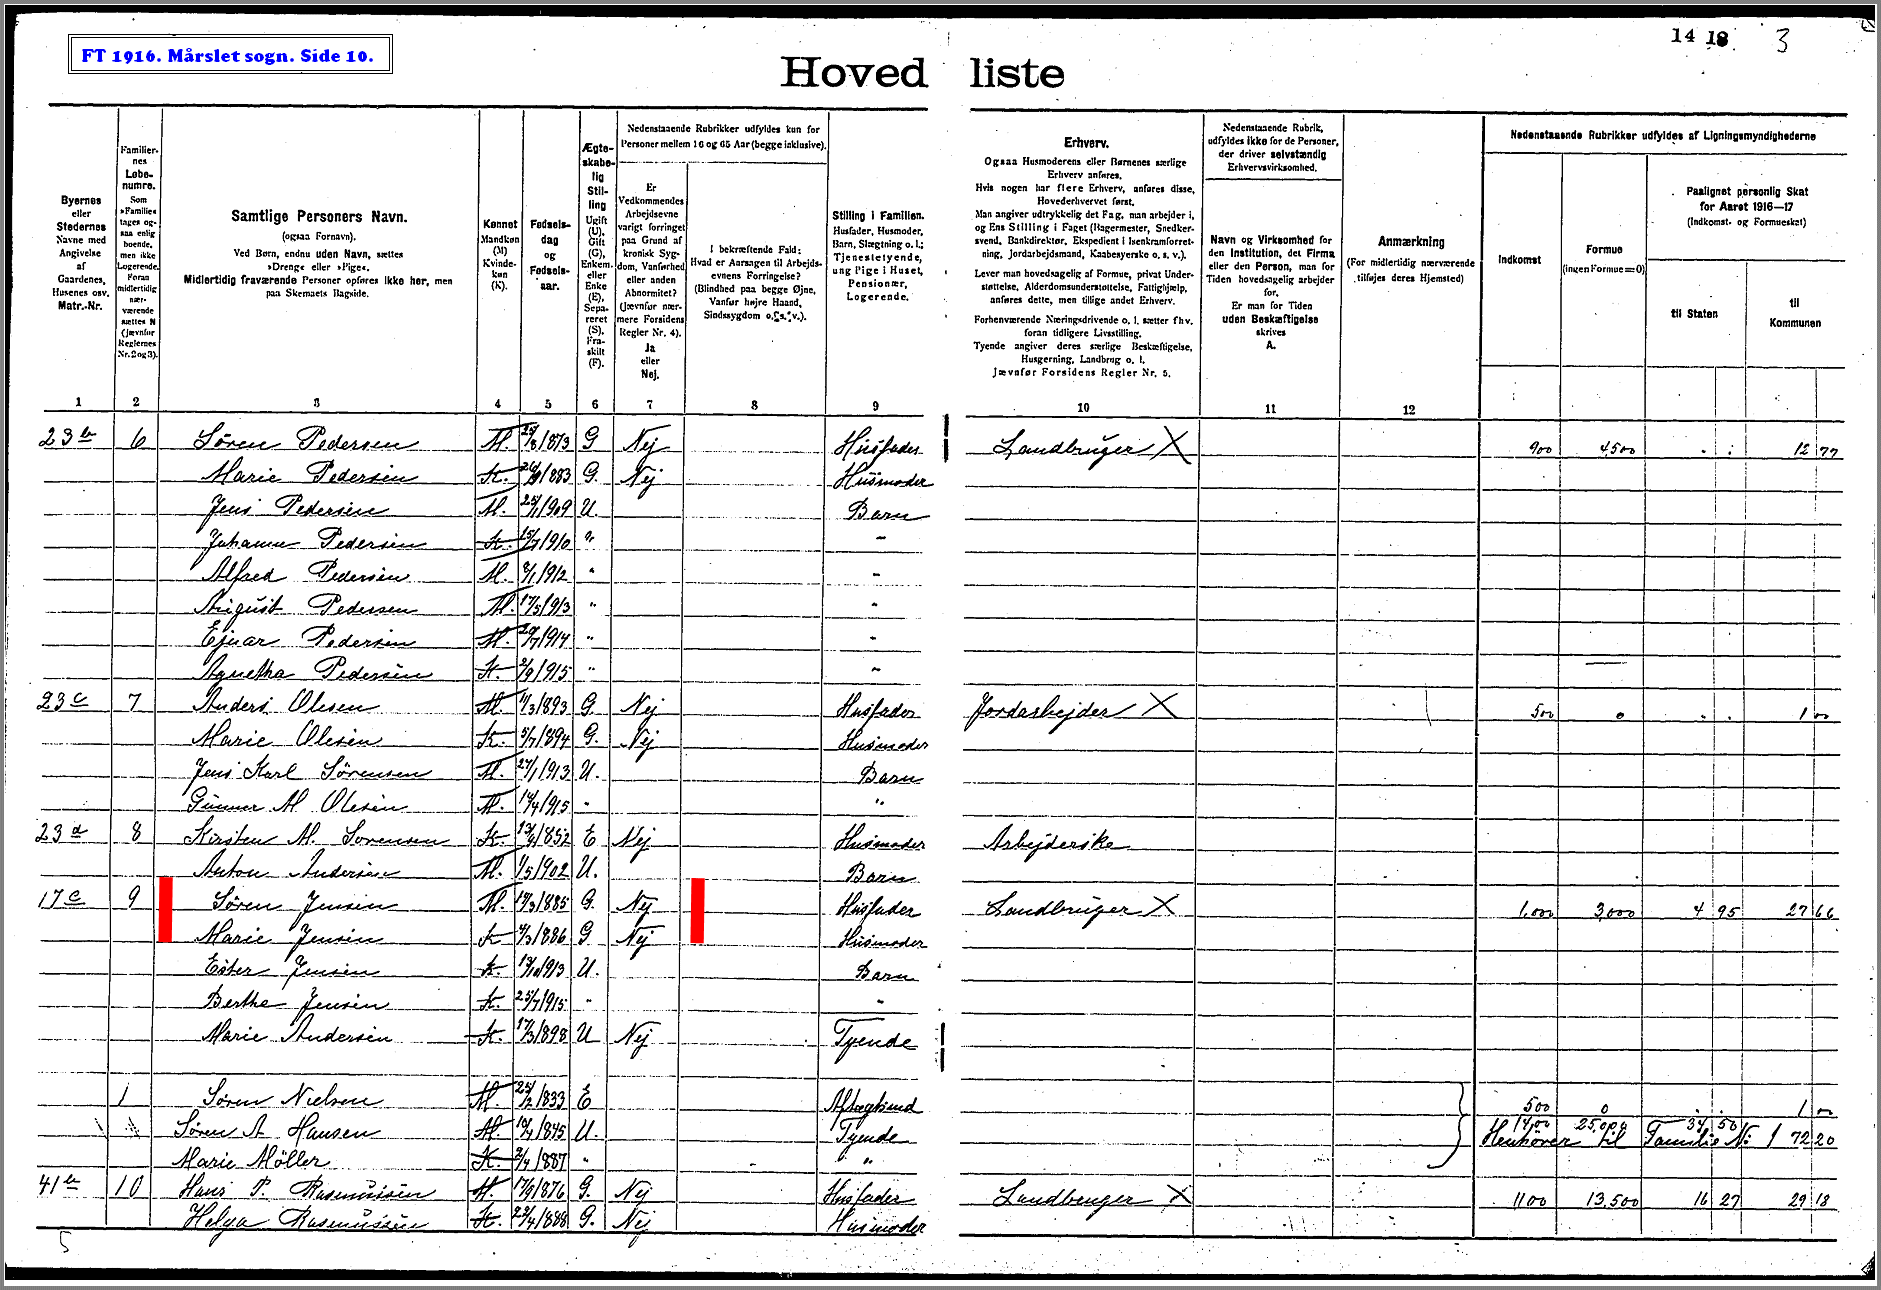 FT 1916. Mårslet sogn. Side 10.
14 18 3
Hoved liste
Byernes
eller
Stedernes
Navne med
Angivelse
af
Gaardenes,
Husenes osv.
Matr.-Nr.
Familier-
nes
Løbe-
numre.
Som
»Familie«
tages og-
saa enlig
boende,
men ikke
Logerende.
Foran
midlertidig
nær-
værende
sættes N
(Jævnfør
Reglernes
Nr. 2 og 3).
Samtlige Personers Navn.
(ogsaa Fornavn).
Ved Børn, endnu uden Navn, sættes
»Dreng« eller »Pige«.
Midlertidig fraværende Personer opføres ikke her, men
paa Skemaets Bagside.
Kønnet
Mandkøn
(M)
Kvinde-
køn
(K).
Fødsels-
dag
og
Fødsels-
aar.
Ægte-
skabe-
lig
Stil-
ling
Ugift
(U),
Gift
(G),
Enkem.
eller
Enke
(E),
Sepa-
reret
(S),
Fra-
skilt
(F).
Nedenstaaende Rubrikker udfyldes kun for
Personer mellem 16 og 65 Aar (begge inklusive).
Er
Vedkommendes
Arbejdsevne
varigt forringet
paa Grund af
kronisk Syg-
dom, Vanførhed
eller anden
Abnormitet?
(Jævnfør nær-
mere Forsidens
Regler Nr. 4).
Ja
eller
Nej.
I bekræftende Fald:
Hvad er Aarsagen til Arbejds-
evnens Forringelse?
(Blindhed paa begge Øjne,
Vanfør højre Haand,
Sindssygdom o. s. v.).
Stilling i Familien.
Husfader, Husmoder,
Barn, Slægtning o. l.;
Tjenestetyende,
ung Pige i Huset,
Pensionær,
Logerende.
Erhverv.
Ogsaa Husmoderens eller Børnenes særlige
Erhverv anføres.
Hvis nogen har flere Erhverv, anføres disse,
Hovederhvervet først.
Man angiver udtrykkelig det Fag, man arbejder i,
og Ens Stilling i Faget (Bagermester, Snedker-
svend, Bankdirektør, Ekspedient i Isenkramforret-
ning, Jordarbejdsmand, Kaabesyerske o. s. v.).
Lever man hovedsagelig af Formue, privat Under-
støttelse, Alderdomsunderstøttelse, Fattighjælp,
anføres dette, men tillige andet Erhverv.
Forhenværende Næringsdrivende o. l. sætter fhv.
foran tidligere Livsstilling.
Tyende angiver deres særlige Beskæftigelse,
Husgerning, Landbrug o. l.
Jævnfør Forsidens Regler Nr. 5.
Nedenstaaende Rubrik,
udfyldes ikke for de Personer,
der driver selvstændig
Erhvervsvirksomhed.
Navn og Virksomhed for
den Institution, det Firma
eller den Person, man for
Tiden hovedsagelig arbejder
for.
Er man for Tiden
uden Beskæftigelse
skrives
A.
Anmærkning
(For midlertidig nærværende
tilføjes deres Hjemsted)
Nedenstaaende Rubrikker udfyldes af Ligningsmyndighederne
Indkomst
Formue
(ingen Formue=0)
Paalignet personlig Skat
for Aaret 1916—17
(Indkomst- og Formueskat)
til Staten
til
Kommunen
1 2 3 4 5 6 7 8 9 10 11 12
23 b 6 Søren Pedersen M. 25/8 1873 G Nej Husfader Landbruger X 900 4500 . . 12 77
Marie Pedersen K. 1883 G. Nej Husmoder
Jens Pedersen M. 25/1 1909 U. Barn
Johanne Pedersen K. 15/7 1910 " "
Alfred Pedersen M. 8/1 1912 " "
August Pedersen M. 17/5 1913 " "
Ejnar Pedersen M. 1914 " "
Agnetha Pedersen K. 2/9 1915 " "
23 c 7 Anders Olesen M. 11/3 1893 G. Nej Husfader Jordarbejder X 500 0 . . 1 00
Marie Olesen K. 5/7 1894 G. Nej Husmoder
Jens Karl Sørensen M. 27/1 1913 U. Barn
Gunner M. Olesen M. 14/4 1915 " "
23 d 8 Kirsten M. Sørensen K. 13/9 1852 E Nej Husmoder Arbejderske
Anton Andersen M. 1/5 1902 U. Barn
17 c 9 Søren Jensen M. 1885 G. Nej Husfader Landbruger X 1,000 3,000 4 95 27 66
Marie Jensen K 4/3 1886 G Nej Husmoder
Ester Jensen K. 13/10 1913 U. Barn
Berthe Jensen K. 25/7 1915 " "
Marie Andersen K. 17/3 1898 U Nej Tyende
1 Søren Nielsen M. 25/2 1833 E Aftægtsmd 500 0 . . 1 00
Søren A Hansen M. 10/7 1845 U. Tyende 1400 25,000 34 50 Henhører til Familie No 1 72 20
Marie Möller K. 2/4 1887 " "
41 b 10 Hans P. Rasmussen M. 17/9 1876 G. Nej Husfader Landbruger X 1100 13,500 16 27 29 18
Helga Rasmussen K. 23/4 1888 G. Nej Husmoder
5